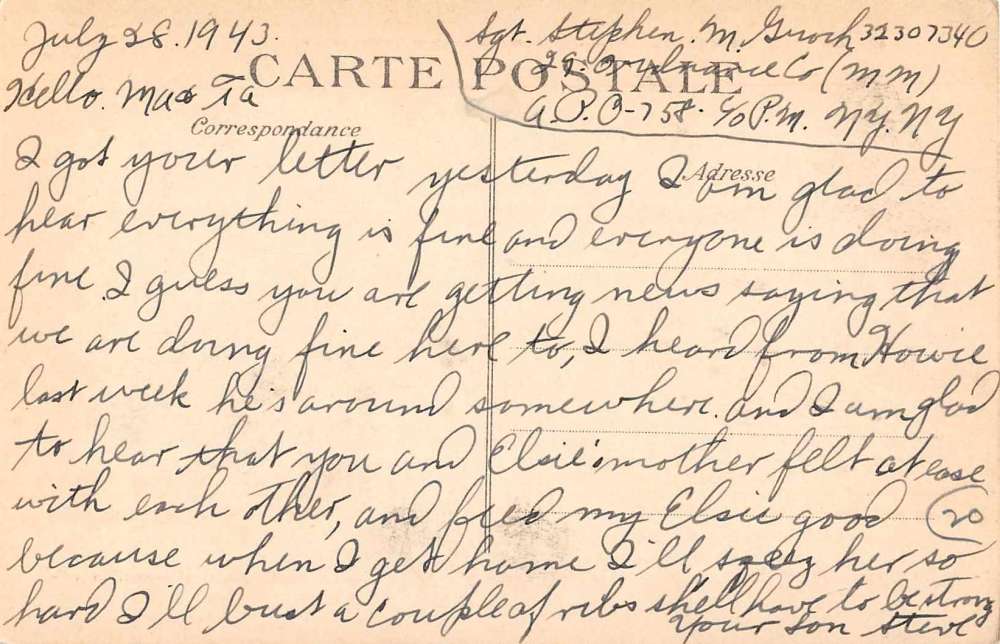 July 28. 1943.
Sgt. Stephen. M. Groch 32307340
CARTE POSTALE
29. Ordnance Co (MM)
Hello. Ma & Ta
A.P.O-758. c/o P.M. N.Y. N.Y
Correspondance
Adresse
I got your letter yesterday I am glad to
hear everything is fine and everyone is doing
fine. I guess you are getting news saying that
we are doing fine here to, I heard from Howie
last week he's around somewhere. and I am glad
to hear that you and Elsie's mother felt at ease
with each other, and feed my Elsie good (20)
because when I get home I'll sqeez her so
hard I'll bust a couple of ribs shell have to be strong
Your Son Steve